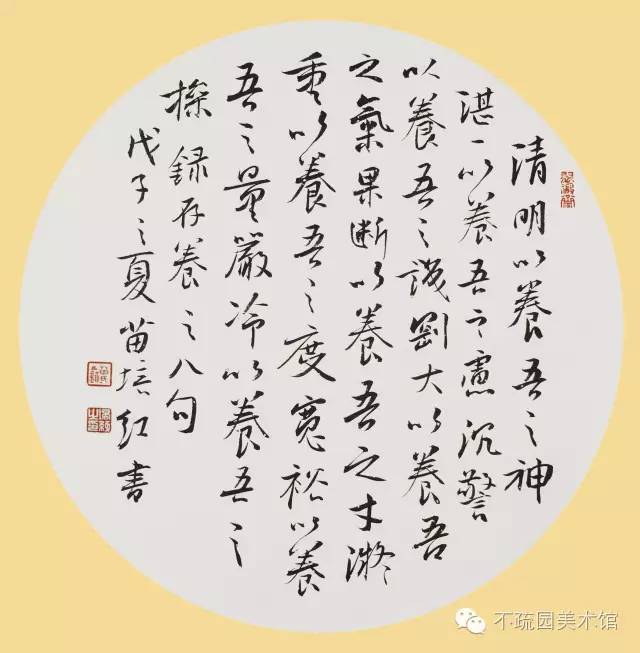 清明以養吾之神
湛一以養吾之慮沉警
以養吾之識剛大以養吾
之氣果断以養吾之才凝
重以養吾之度寬裕以養
吾之量嚴冷以養吾之
操 録存養之八句
戊子之夏苗培红書
不疏园美术馆